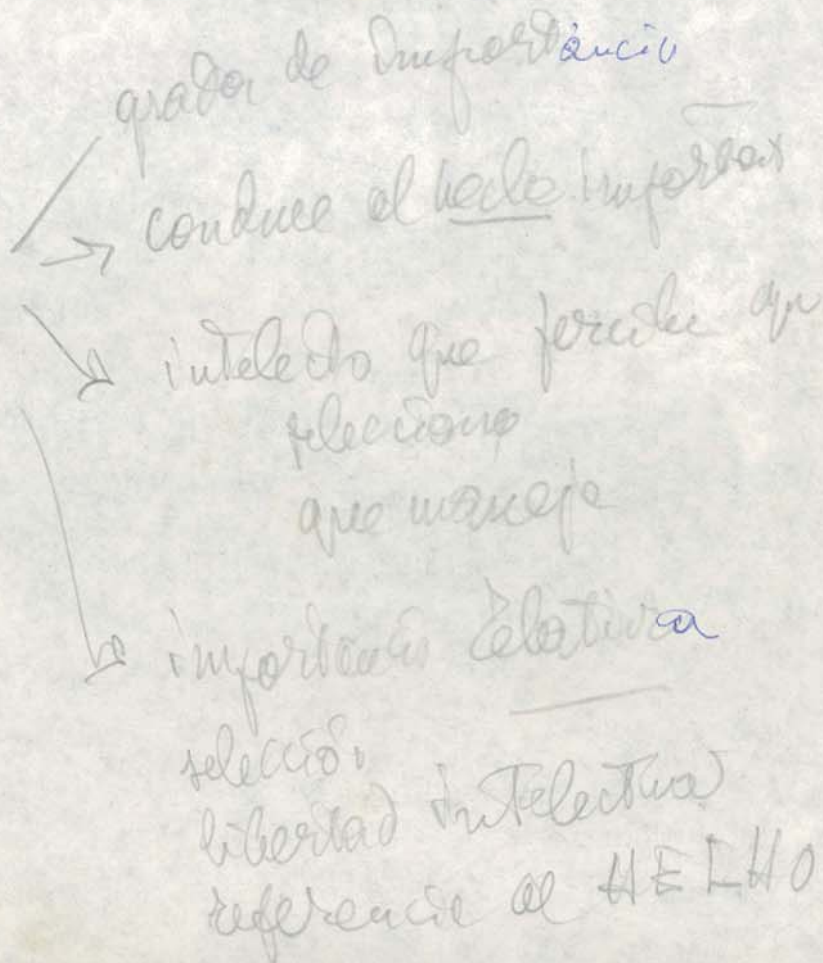 grados de importancia
conduce al hecho importar
intelecto que percibe
selecciona
que maneja
importancia relativa
selección
libertad intelectual
referencia al HECHO